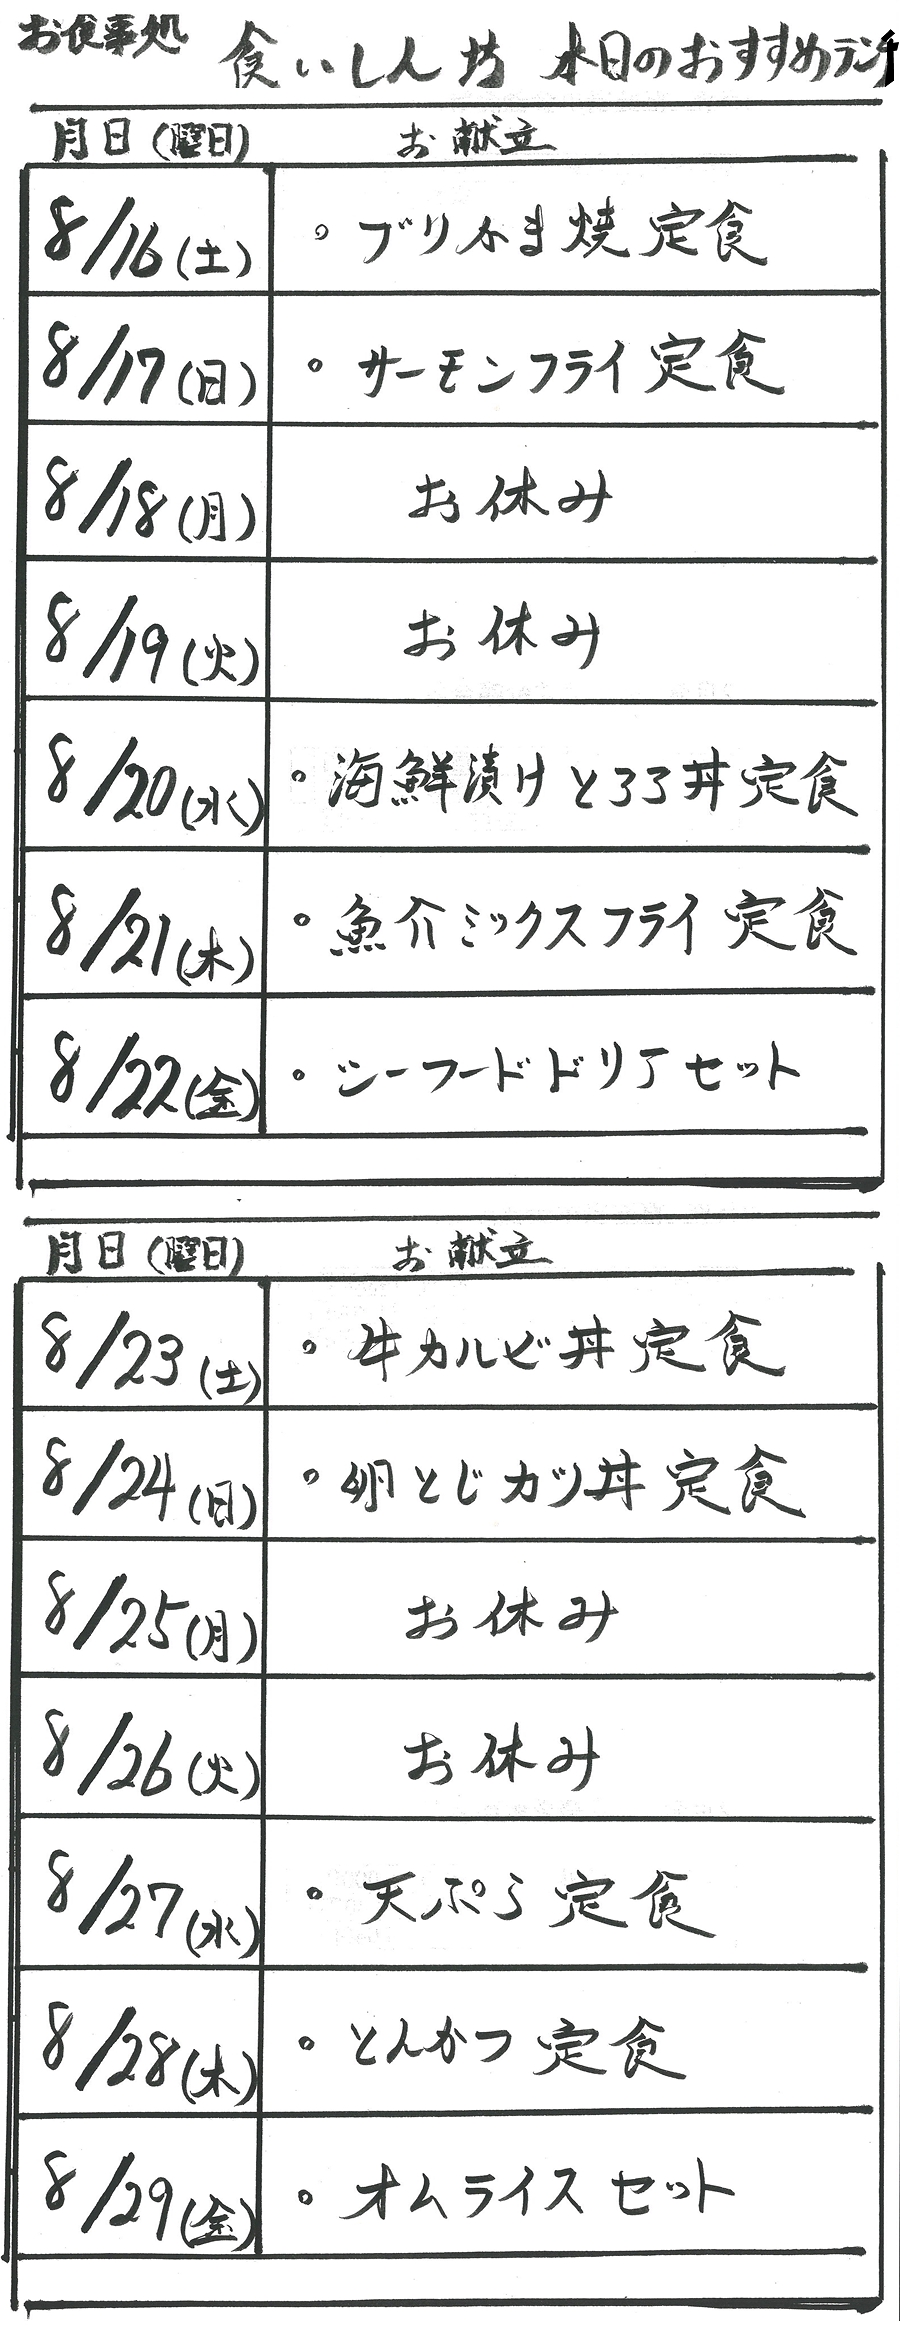 お食事処 食いしん坊 本日のおすすめランチ
月日(曜日) お献立
8/16(土) 。ブリかま焼定食
8/17(日) 。サーモンフライ定食
8/18(月) お休み
8/19(火) お休み
8/20(水) 。海鮮漬けとろろ丼定食
8/21(木) 。魚介ミックスフライ定食
8/22(金) 。シーフードドリアセット
月日(曜日) お献立
8/23(土) 。牛カルビ丼定食
8/24(日) 。卵とじカツ丼定食
8/25(月) お休み
8/26(火) お休み
8/27(水) 。天ぷら定食
8/28(木) 。とんかつ定食
8/29(金) 。オムライスセット